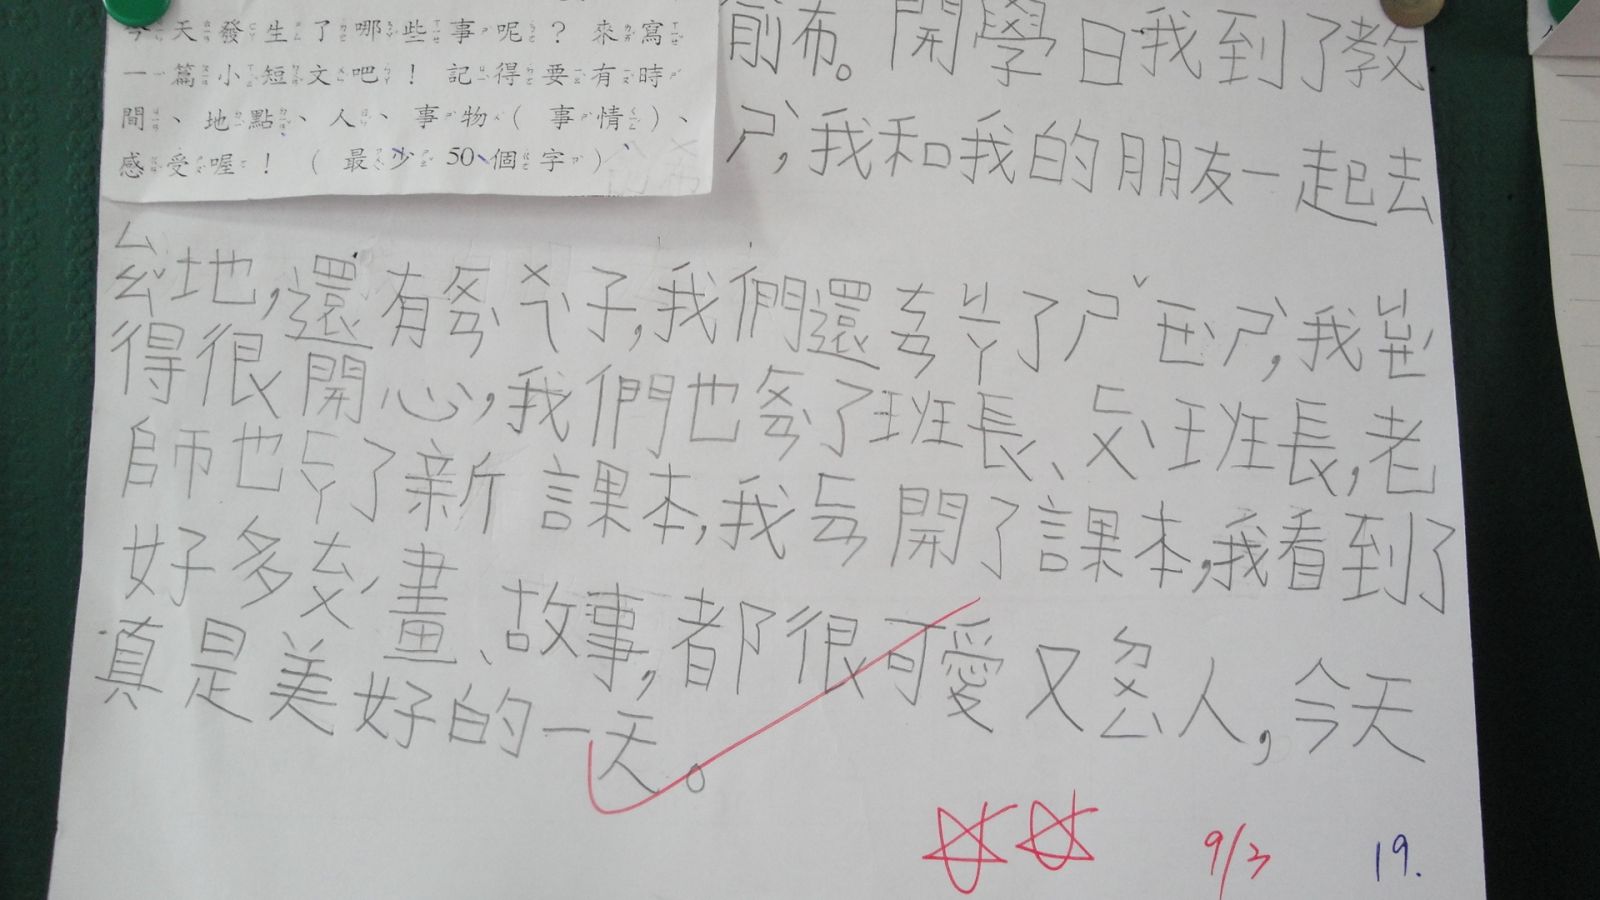 今天發生了哪些事呢？來寫
一篇小短文吧！記得要有時
間、地點、人、事物（事情）、
感受喔！（最少50個字）
前布。開學日我到了教
ㄕˋ，我和我的朋友一起去
ㄙㄠˇ地，還有ㄘㄚ ㄨㄟˋ子，我們還ㄊㄧ
得很開心，我們也ㄒㄩㄢˇ了班長、ㄈㄨˋ班長，老
師也ㄈㄚ了新課本，我ㄈㄢ開了課本，我看到了
好多ㄊㄨˊ畫、故事，都很可愛又ㄉㄨㄥˋ人，今天
真是美好的一天。
9/3
19.